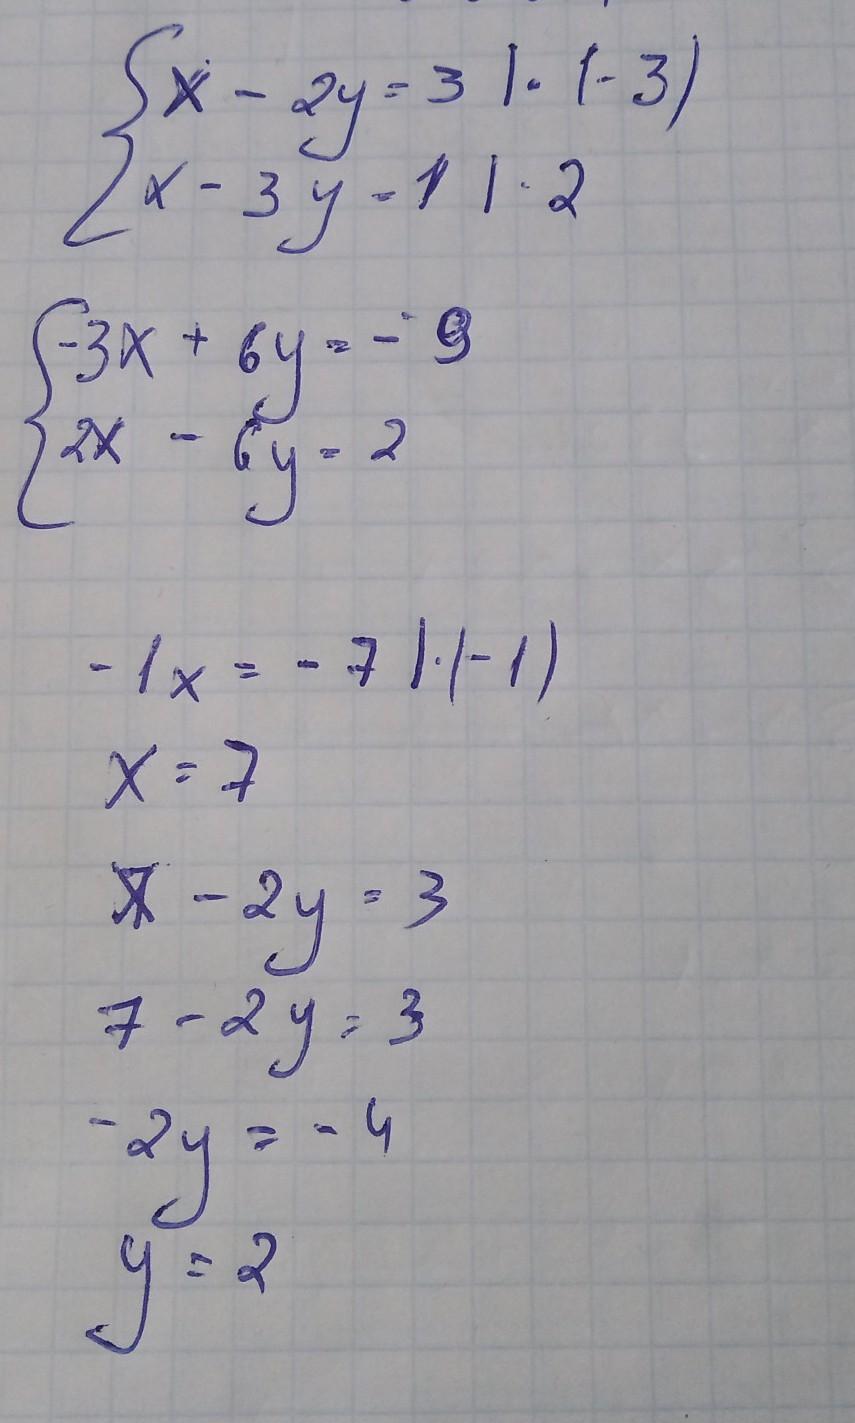 { x - 2y = 3 | · (-3)
x - 3y = 1 | · 2
{ -3x + 6y = - 9
2x - 6y = 2
-1x = - 7 | · (-1)
x = 7
x - 2y = 3
7 - 2y = 3
-2y = - 4
y = 2